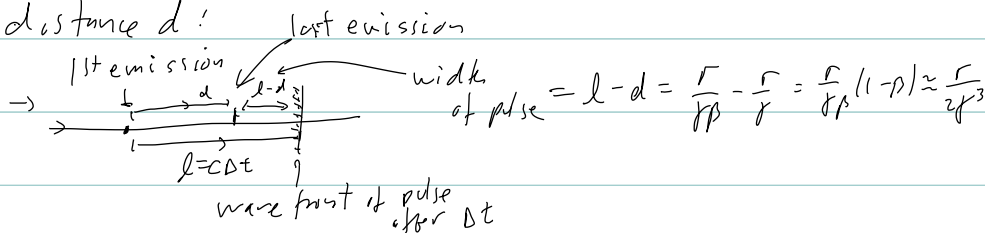 distance d:
last emission
1st emission
d l-d
→ width of pulse = l-d = r/γβ - r/γ = r/γβ (1-β) ≈ r/2γ³
l = cΔt
wave front of pulse
after Δt